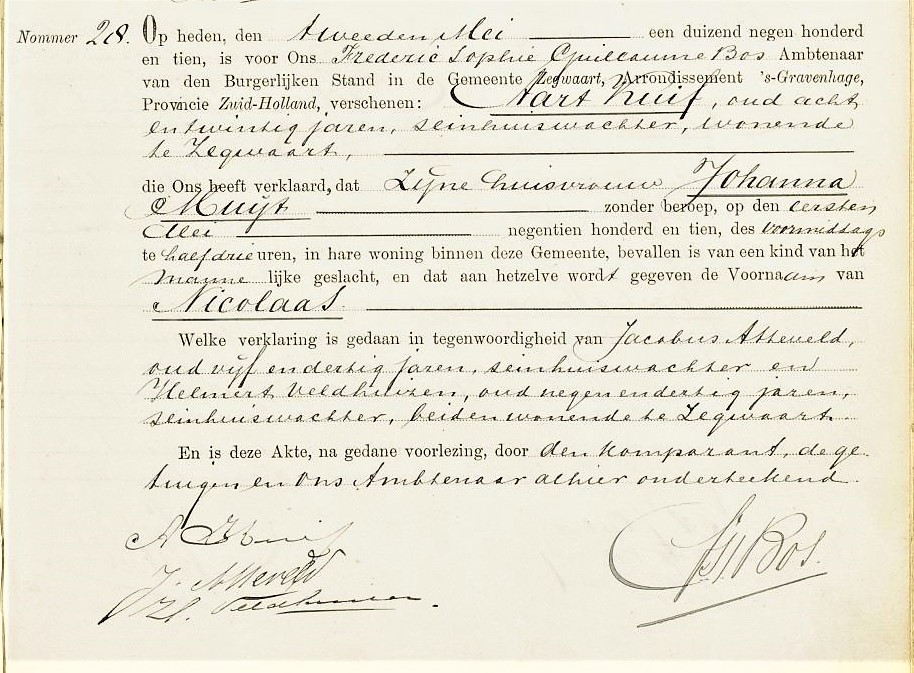 Nommer 28. Op heden, den tweeden Mei een duizend negen honderd
en tien, is voor Ons Frederic Sophie Guillaume Bos Ambtenaar
van den Burgerlijken Stand in de Gemeente Zegwaart, Arrondissement 's-Gravenhage,
Provincie Zuid-Holland, verschenen: Aart Kuif, oud acht
en twintig jaren, seinhuiswachter, wonende
te Zegwaart,
die Ons heeft verklaard, dat Zijne huisvrouw Johanna
Muijt zonder beroep, op den eersten
Mei negentien honderd en tien, des voormiddags
te half drie uren, in hare woning binnen deze Gemeente, bevallen is van een kind van het
manne lijke geslacht, en dat aan hetzelve wordt gegeven de Voornaam van
Nicolaas
Welke verklaring is gedaan in tegenwoordigheid van Jacobus Atteveld,
oud vijf en dertig jaren, seinhuiswachter en
Helmert Veldhuizen, oud negen en dertig jaren,
seinhuiswachter, beiden wonende te Zegwaart.
En is deze Akte, na gedane voorlezing, door den komparant, de ge-
tuigen en Ons Ambtenaar alhier onderteekend.
A Kuif
J. Atteveld
H. Veldhuizen.
Bos.